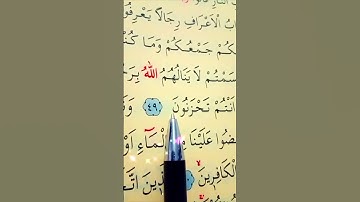 بُ الْاَعْرَافِ رِجَالًا يَعْرِفُو
كُمْ جَمْعُكُمْ وَمَا كُنْ
سَمْتُمْ لَا يَنَالُهُمُ اللّٰهُ بِرَحْ
اَنْتُمْ تَحْزَنُونَ ﴿٤٩﴾ وَ
ضُوا عَلَيْنَا مِ الْمَٓاءِ اَوْ
الْكَافِرِينَ ذِينَ اتَّخَ